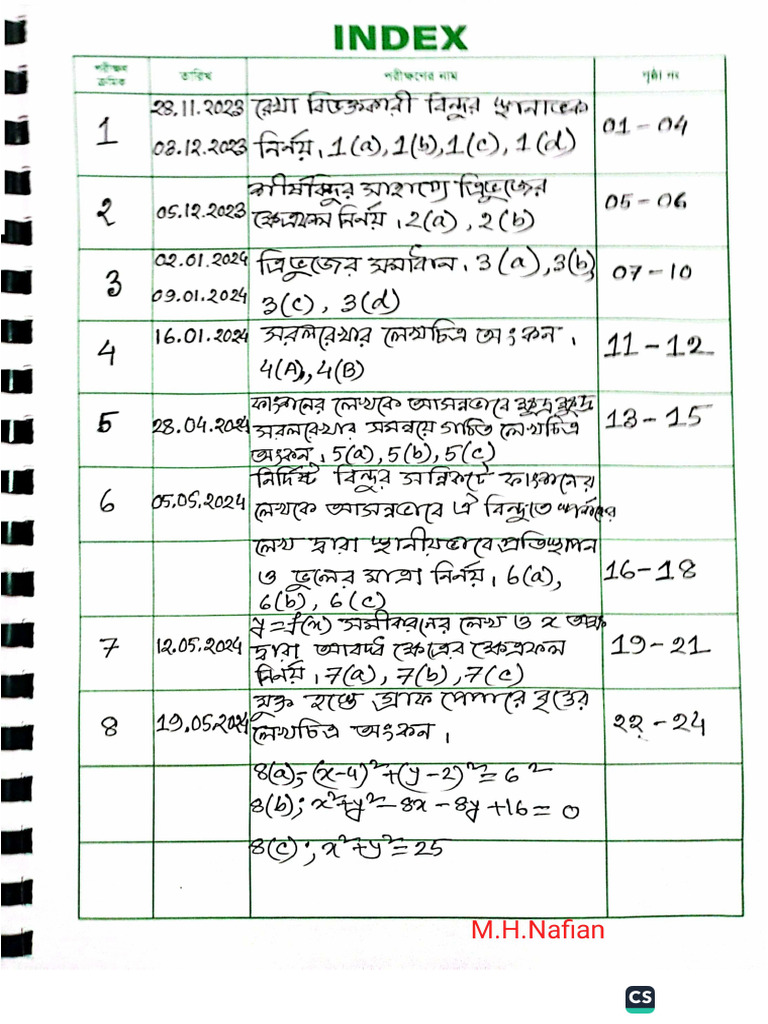 INDEX
পরীক্ষণ ক্রমিক তারিখ পরীক্ষণের নাম পৃষ্ঠা নং
1 28.11.2023 রেখা বিভক্তকারী বিন্দুর স্থানাংক 01 - 04
03.12.2023 নির্নয়। 1(a), 1(b), 1(c), 1(d)
2 শীর্ষবিন্দুর সাহায্যে ত্রিভুজের 05 - 06
05.12.2023 ক্ষেত্রফল নির্নয়। 2(a), 2(b)
3 02.01.2024 ত্রিভুজের সমাধান। 3(a), 3(b) 07 - 10
09.01.2024 3(c), 3(d)
4 16.01.2024 সরলরেখার লেখচিত্র অংকন। 11 - 12
4(A), 4(B)
5 ফাংশনের লেখকে আসন্নভাবে ক্ষুদ্র ক্ষুদ্র 13 - 15
28.04.2024 সরলরেখার সমন্বয়ে গঠিত লেখচিত্র
অংকন। 5(a), 5(b), 5(c)
6 নির্দিষ্ট বিন্দুর সন্নিকটে ফাংশনের
05.05.2024 লেখকে আসন্নভাবে ঐ বিন্দুতে স্পর্শকের
লেখ দ্বারা স্থানীয়ভাবে প্রতিস্থাপন 16-18
ও ভুলের মাত্রা নির্নয়। 6(a),
6(b), 6(c)
7 y=f(x) সমীকরনের লেখ ও x অক্ষ 19 - 21
12.05.2024 দ্বারা আবদ্ধ ক্ষেত্রের ক্ষেত্রফল
নির্নয়। 7(a), 7(b), 7(c)
8 মুক্ত হস্তে গ্রাফ পেপারে বৃত্তের 22 - 24
19.05.2024 লেখচিত্র অংকন।
8(a); (x-4)²+(y-2)²=6²
8(b); x²+y²-8x-8y+16=0
8(c); x²+y²=25
M.H.Nafian
CS